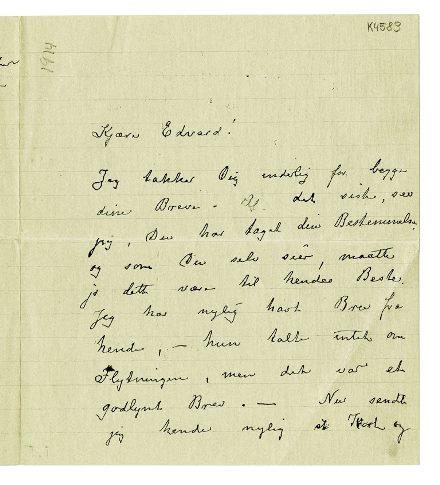 K4583
1914
Kjære Edvard!
Jeg takker Dig inderlig for begge
dine Breve. Af det siste, ser
jeg, Du har taget din Bestemmelse
og som Du selv siér, maatte
jo dette være til hendes Beste.
Jeg har nylig havt Brev fra
hende, – hun talte intet om
Flytningen, men det var et
godlynt Brev. — Nu sendte
jeg hende nylig et Kort og